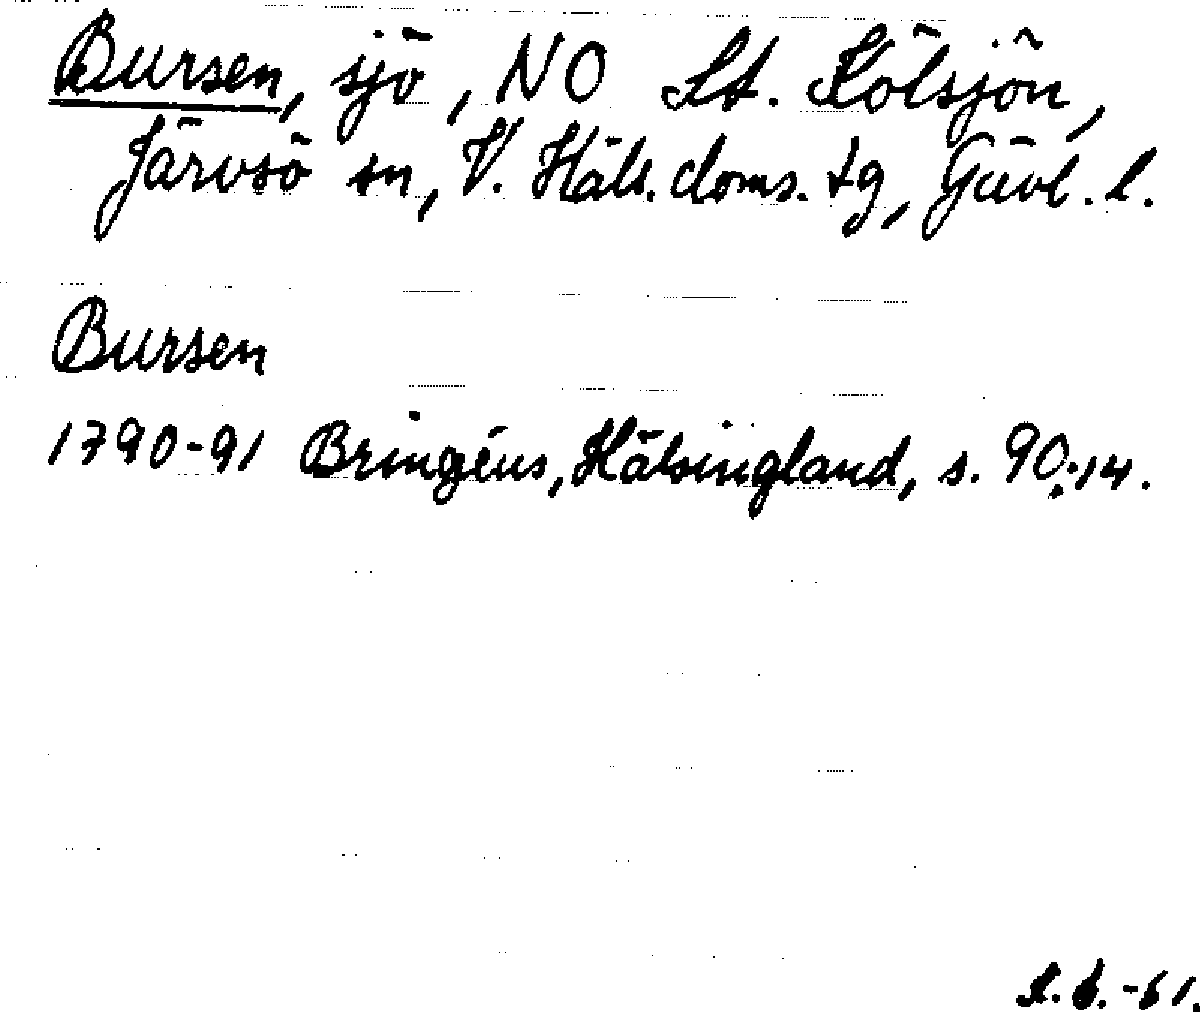 Bursen, sjö, NO St. Kölsjön,
Järvsö sn, V. Häls. doms. tg, Gävl. l.
Bursen
1790-91 Bringéus, Hälsingland, s. 90:14.
-61.